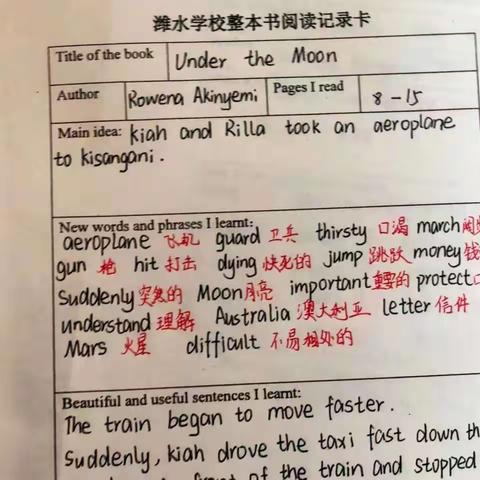 潍水学校整本书阅读记录卡
Title of the book Under the Moon
Author Rowena Akinyemi Pages I read 8-15
Main idea: kiah and Rilla took an aeroplane
to kisangani.
New words and phrases I learnt:
aeroplane 飞机 guard 卫兵 thirsty 口渴 march
gun 枪 hit 打击 dying 快死的 jump 跳跃 money 钱
Suddenly 突然的 Moon 月亮 important 重要的 protect
understand 理解 Australia 澳大利亚 letter 信件
Mars 火星 difficult 不易相处的
Beautiful and useful sentences I learnt:
The train began to move faster.
Suddenly, kiah drove the taxi fast down th
front of the train and stopped